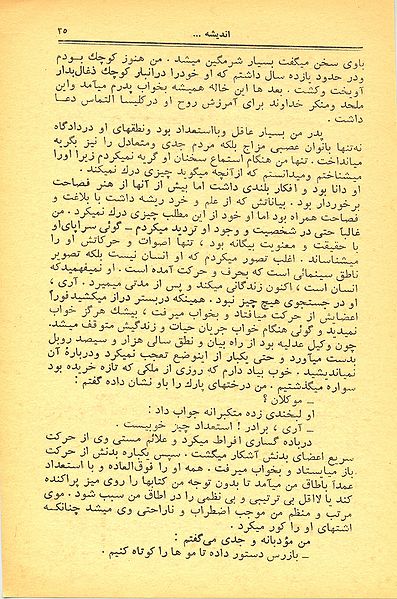 اندیشه ...
۳۵
باوی سخن میگفت بسیار شرمگین میشد . من هنوز کوچك بودم
ودر حدود یازده سال داشتم که او خودرا درانبار کوچك ذغالبدار
آویخت وکشت . بعد ها این خاله همیشه بخواب پدرم میآمد واین
ملحد ومنکر خداوند برای آمرزش روح او درکلیسا التماس دعا
داشت .
پدر من بسیار عاقل وبااستعداد بود ونطقهای او دردادگاه
نه‌تنها بانوان عصبی مزاج بلکه مردم جدی ومتعادل را نیز بگریه
میانداخت . تنها من هنگام استماع سخنان او گریه نمیکردم زیرا اورا
میشناختم ومیدانستم که ازآنچه میگوید چیزی درك نمیکند .
او دانا بود و افکار بلندی داشت اما بیش از آنها از هنر فصاحت
برخوردار بود . بیاناتش که از علم و خرد ریشه داشت با بلاغت و
فصاحت همراه بود اما او خود از این مطلب چیزی درك نمیکرد . من
غالباً حتی در شخصیت و وجود او تردید میکردم – گوئی سراپای‌او
با حقیقت و معنویت بیگانه بود ، تنها اصوات و حرکاتش او را
میشناساند . اغلب تصور میکردم که او انسان نیست بلکه تصویر
ناطق سینمائی است که بحرف و حرکت آمده است . او نمیفهمیدکه
انسان است ، اکنون زندگانی میکند و پس از مدتی میمیرد . آری ،
او در جستجوی هیچ چیز نبود . همینکه دربستر دراز میکشیدفوراً
اعضایش از حرکت میافتاد و بخواب میرفت ، بیشك هرگز خواب
نمیدید و گوئی هنگام خواب جریان حیات و زندگیش متوقف میشد.
چون وکیل عدلیه بود از راه بیان و نطق سالی هزار و سیصد روبل
بدست میآورد و حتی یکبار از اینوضع تعجب نمیکرد ودربارهٔ آن
نمیاندیشید . خوب بیاد دارم که روزی از ملکی که تازه خریده بود
سواره میگذشتیم . من درختهای پارك را باو نشان داده گفتم :
– موکلان ؟
او لبخندی زده متکبرانه جواب داد :
– آری ، برادر ! استعداد چیز خوبیست .
درباده گساری افراط میکرد و علائم مستی وی از حرکت
سریع اعضای بدنش آشکار میگشت . سپس یکباره بدنش از حرکت
باز میایستاد و بخواب میرفت . همه او را فوق‌العاده و با استعداد
عمداً باطاق من میآمد تا بدون توجه من کتابها را روی میز پراکنده
کند یا لااقل بی ترتیبی و بی نظمی را در اطاق من سبب شود . موی
مرتب و منظم من موجب اضطراب و ناراحتی وی میشد چنانکـه
اشتهای او را کور میکرد .
من مؤدبانه و جدی می‌گفتم :
– بازرس دستور داده تا مو ها را کوتاه کنیم .